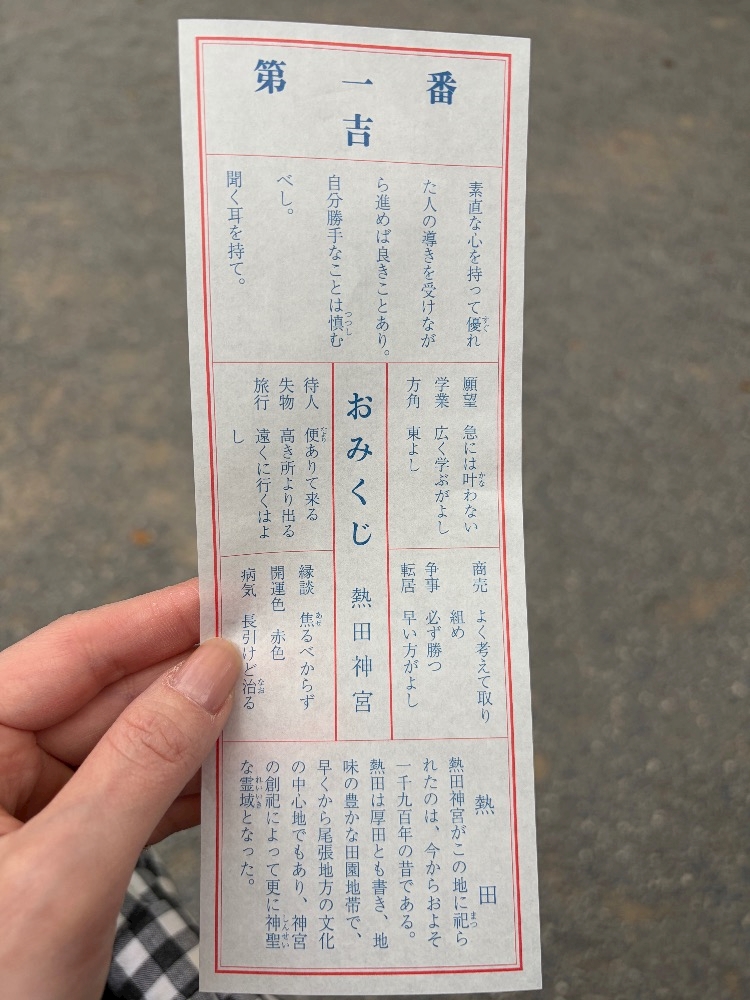 第一番
吉
素直な心を持って優れ
た人の導きを受けなが
ら進めば良きことあり。
自分勝手なことは慎む
べし。
聞く耳を持て。
願望 急には叶わない
学業 広く学ぶがよし
方角 東よし
商売 よく考えて取り
組め
争事 必ず勝つ
転居 早い方がよし
おみくじ 熱田神宮
待人 便ありて来る
失物 高き所より出る
旅行 遠くに行くはよ
し
縁談 焦るべからず
開運色 赤色
病気 長引けど治る
熱田
熱田神宮がこの地に祀ら
れたのは、今からおよそ
一千九百年の昔である。
熱田は厚田とも書き、地
味の豊かな田園地帯で、
早くから尾張地方の文化
の中心地でもあり、神宮
の創祀によって更に神聖
な霊域となった。